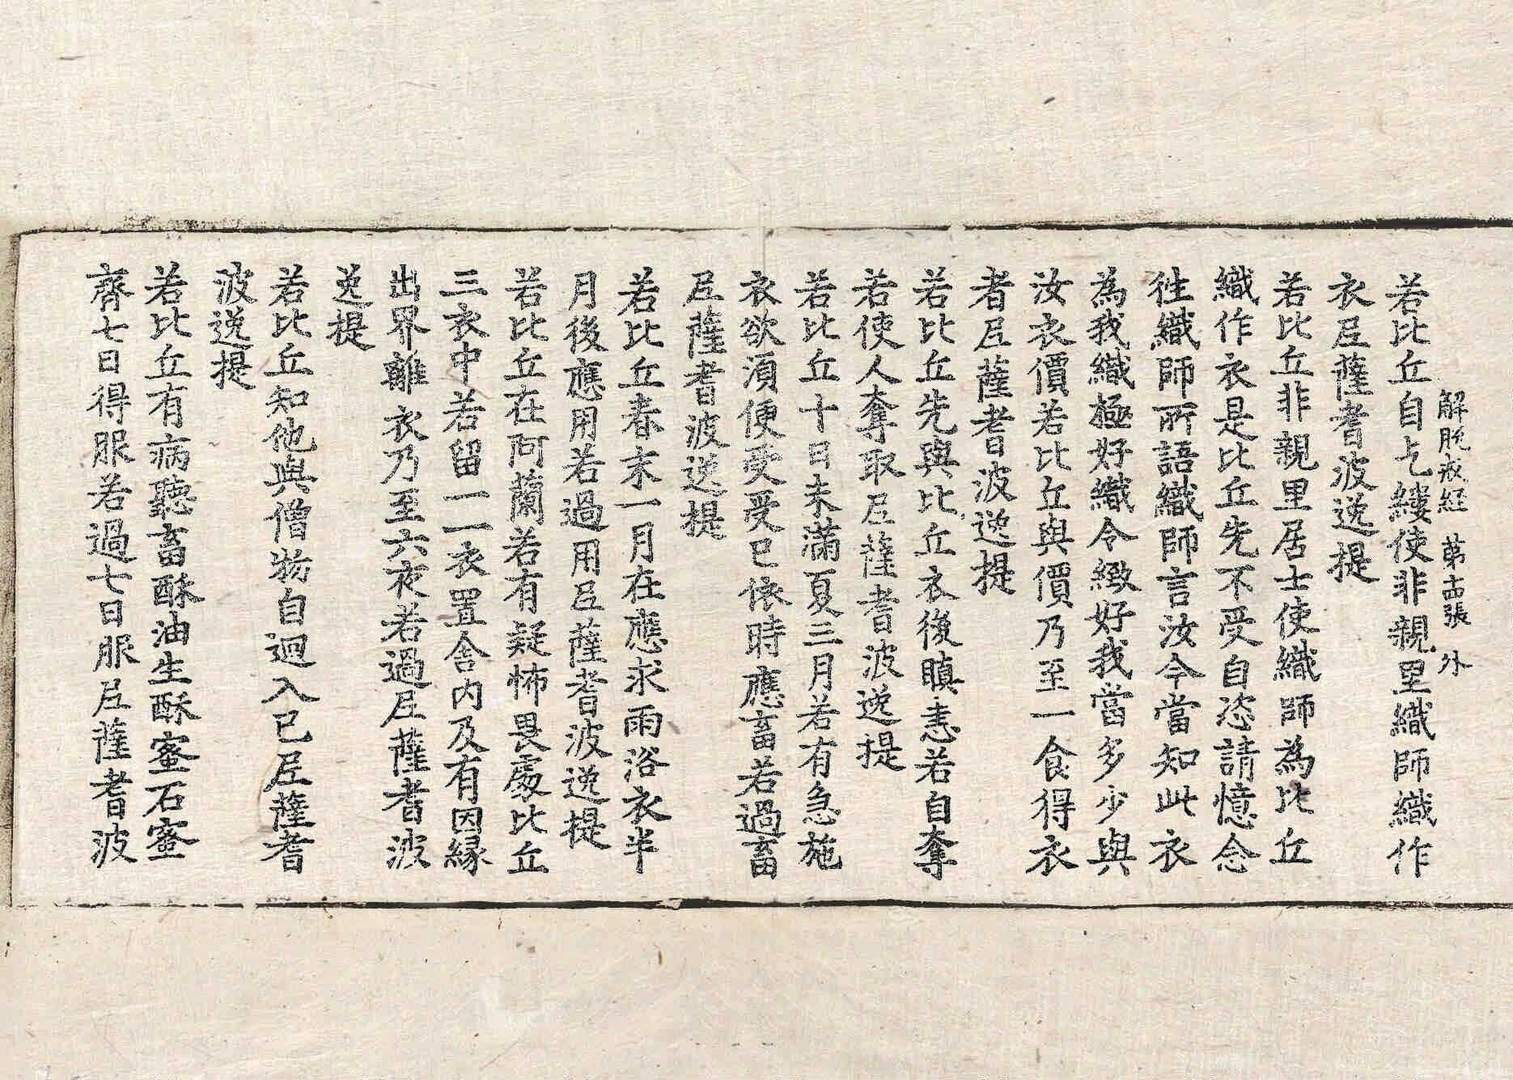 解脫戒經 第十四張 外
若比丘自乞縷使非親里織師織作
衣尼薩耆波逸提
若比丘非親里居士使織師為比丘
織作衣是比丘先不受自恣請憶念
往織師所語織師言汝今當知此衣
為我織極好織令緻好我當多少與
汝衣價若比丘與價乃至一食得衣
者尼薩耆波逸提
若比丘先與比丘衣後瞋恚若自奪
若使人奪取尼薩耆波逸提
若比丘十日未滿夏三月若有急施
衣欲須便受受已依時應畜若過畜
尼薩耆波逸提
若比丘春末一月在應求雨浴衣半
月後應用若過用尼薩耆波逸提
若比丘在阿蘭若有疑怖畏處比丘
三衣中若留一一衣置舍內及有因緣
出界離衣乃至六夜若過尼薩耆波
逸提
若比丘知他與僧物自迴入已尼薩耆
波逸提
若比丘有病聽畜酥油生酥蜜石蜜
齊七日得服若過七日服尼薩耆波